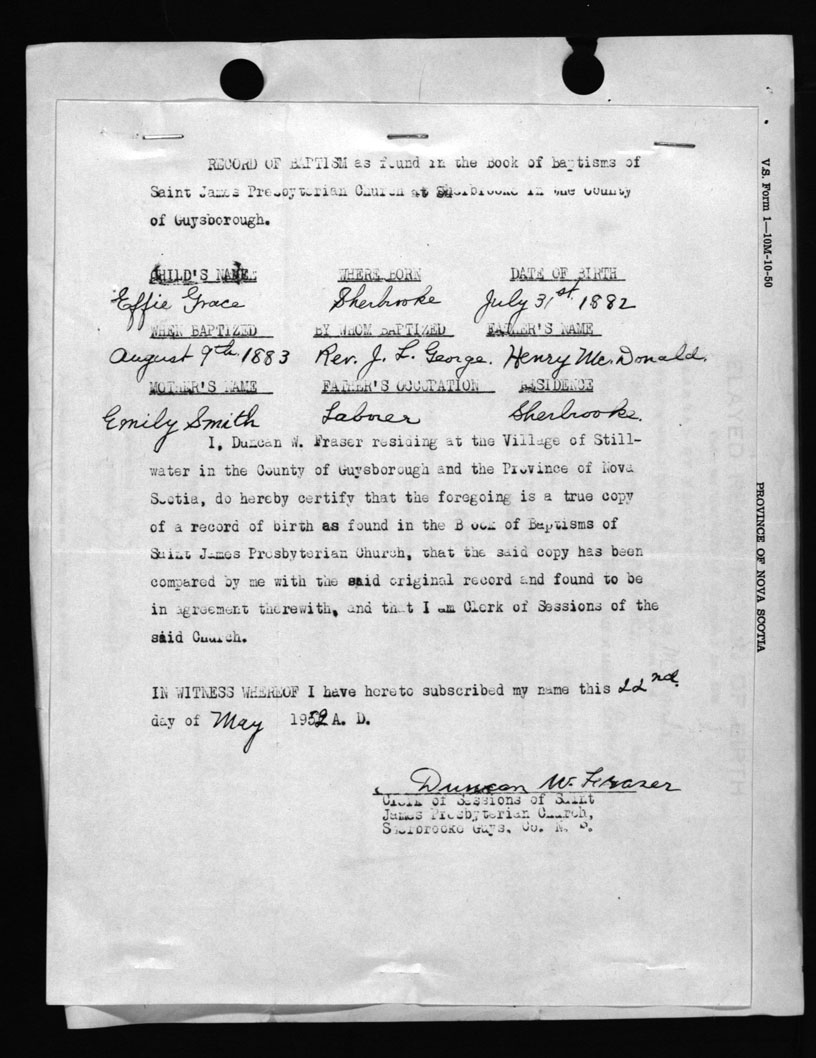 RECORD OF BAPTISM as found in the Book of baptisms of
Saint James Presbyterian Church at Sherbrooke in the County
of Guysborough.
CHILD'S NAME: WHERE BORN DATE OF BIRTH
Effie Grace Sherbrooke July 31st. 1882
WHEN BAPTIZED BY WHOM BAPTIZED FATHER'S NAME
August 9th. 1883 Rev. J. L. George. Henry Mc.Donald.
MOTHER'S NAME FATHER'S OCCUPATION RESIDENCE
Emily Smith Laborer Sherbrooke.
I, Duncan W. Fraser residing at the Village of Still-
water in the County of Guysborough and the Province of Nova
Scotia, do hereby certify that the foregoing is a true copy
of a record of birth as found in the Book of Baptisms of
Saint James Presbyterian Church, that the said copy has been
compared by me with the said original record and found to be
in agreement therewith, and that I am Clerk of Sessions of the
said Church.
IN WITNESS WHEREOF I have hereto subscribed my name this 22nd.
day of May 1952 A. D.
Duncan W. Fraser
Clerk of Sessions of Saint
James Presbyterian Church,
Sherbrooke Guys. Co. N. S.
V.S. Form 1—10M-10-50
PROVINCE OF NOVA SCOTIA